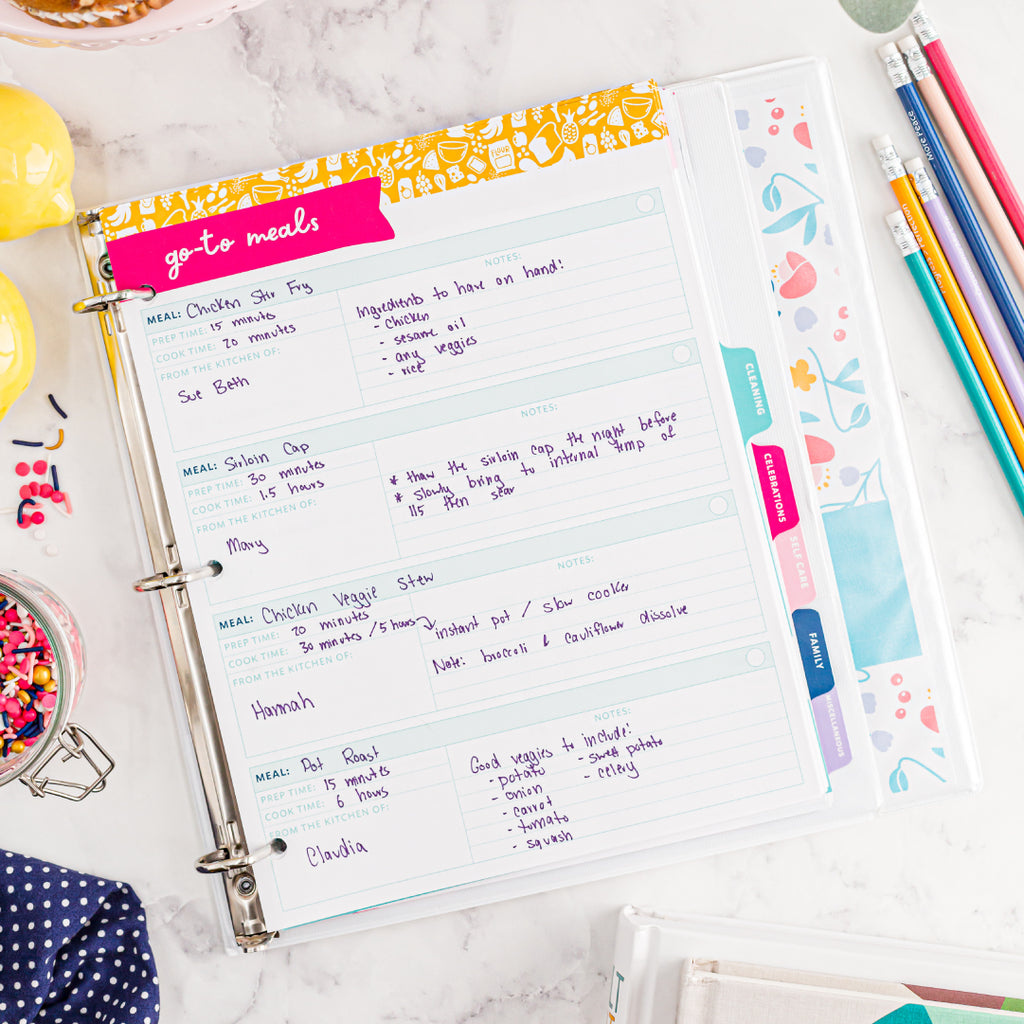 go-to meals
MEAL: Chicken Stir Fry
PREP TIME: 15 minutes
COOK TIME: 20 minutes
FROM THE KITCHEN OF:
Sue Beth
NOTES:
Ingredients to have on hand!
- chicken
- sesame oil
- any veggies
- rice
MEAL: Sirloin Cap
PREP TIME: 30 minutes
COOK TIME: 1.5 hours
FROM THE KITCHEN OF:
Mary
NOTES:
* thaw the sirloin cap the night before
* slowly bring to internal temp of
115 then sear
MEAL: Chicken Veggie Stew
PREP TIME: 20 minutes
COOK TIME: 30 minutes / 5 hours
FROM THE KITCHEN OF:
Hannah
NOTES:
instant pot / slow cooker
Note: broccoli & cauliflower dissolve
MEAL: Pot Roast
PREP TIME: 15 minutes
COOK TIME: 6 hours
FROM THE KITCHEN OF:
Claudia
NOTES:
Good veggies to include!
- potato - sweet potato
- onion - celery
- carrot
- tomato
- squash
CLEANING
CELEBRATIONS
SELF CARE
FAMILY
MISCELLANEOUS
FLOUR
More Peace